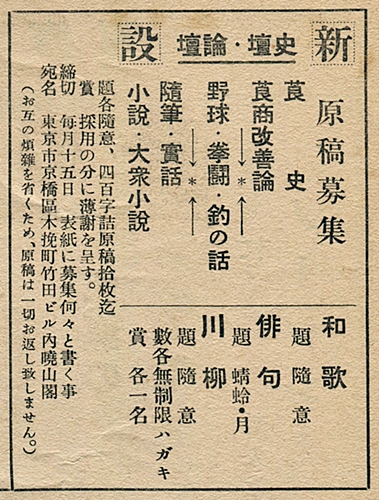 新設 史壇・論壇
原稿募集
莨史
莨商改善論
→*←
野球・拳闘・釣の話
→*←
隨筆・實話
小說・大衆小說
題各隨意、四百字詰原稿拾枚迄
賞 採用の分に薄謝を呈す。
締切 每月十五日 表紙に募集何々と書く事
宛名 東京市京橋區木挽町竹田ビル內曉山閣
（お互の煩雜を省くため、原稿は一切お返し致しません。）
和歌
題隨意
俳句
題 蜻蛉・月
川柳
題隨意
數各無制限ハガキ
賞各一名